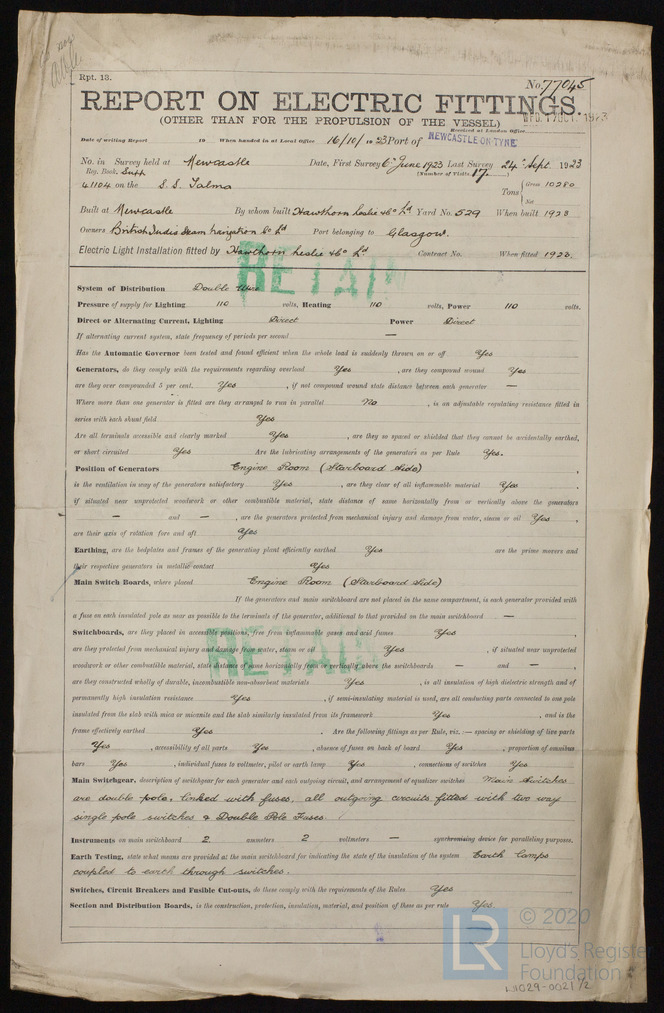 Rpt. 13.
No. 77045
REPORT ON ELECTRIC FITTINGS.
(OTHER THAN FOR THE PROPULSION OF THE VESSEL)
Received at London Office
Date of writing Report 19 When handed in at Local Office 16/10/1923 Port of NEWCASTLE-ON-TYNE
No. in Survey held at Newcastle Date, First Survey 6th June 1923 Last Survey 24th Sept. 1923
Reg. Book. Supp (Number of Visits 17.)
41104 on the S.S. Talma Tons { Gross 10280
Net
Built at Newcastle By whom built Hawthorn Leslie & Co Ld Yard No. 529 When built 1923
Owners British India Steam Navigation Co Ld Port belonging to Glasgow.
Electric Light Installation fitted by Hawthorn Leslie & Co Ld Contract No. When fitted 1923.
RETAIN
System of Distribution Double Wire
Pressure of supply for Lighting 110 volts, Heating 110 volts, Power 110 volts.
Direct or Alternating Current, Lighting Direct Power Direct
If alternating current system, state frequency of periods per second —
Has the Automatic Governor been tested and found efficient when the whole load is suddenly thrown on or off Yes
Generators, do they comply with the requirements regarding overload Yes, are they compound wound Yes
are they over compounded 5 per cent. Yes, if not compound wound state distance between each generator —
Where more than one generator is fitted are they arranged to run in parallel No, is an adjustable regulating resistance fitted in
series with each shunt field Yes
Are all terminals accessible and clearly marked Yes, are they so spaced or shielded that they cannot be accidentally earthed,
or short circuited Yes Are the lubricating arrangements of the generators as per Rule Yes.
Position of Generators Engine Room (Starboard Side)
is the ventilation in way of the generators satisfactory Yes, are they clear of all inflammable material Yes,
if situated near unprotected woodwork or other combustible material, state distance of same horizontally from or vertically above the generators
— and —, are the generators protected from mechanical injury and damage from water, steam or oil Yes,
are their axis of rotation fore and aft Yes
Earthing, are the bedplates and frames of the generating plant efficiently earthed Yes are the prime movers and
their respective generators in metallic contact Yes
Main Switch Boards, where placed Engine Room (Starboard Side)
If the generators and main switchboard are not placed in the same compartment, is each generator provided with
a fuse on each insulated pole as near as possible to the terminals of the generator, additional to that provided on the main switchboard —
Switchboards, are they placed in accessible positions, free from inflammable gases and acid fumes Yes,
are they protected from mechanical injury and damage from water, steam or oil Yes, if situated near unprotected
woodwork or other combustible material, state distance of same horizontally from or vertically above the switchboards — and —,
RETAIN
are they constructed wholly of durable, incombustible non-absorbent materials Yes, is all insulation of high dielectric strength and of
permanently high insulation resistance Yes, if semi-insulating material is used, are all conducting parts connected to one pole
insulated from the slab with mica or micanite and the slab similarly insulated from its framework Yes, and is the
frame effectively earthed Yes. Are the following fittings as per Rule, viz.:— spacing or shielding of live parts
Yes, accessibility of all parts Yes, absence of fuses on back of board Yes, proportion of omnibus
bars Yes, individual fuses to voltmeter, pilot or earth lamp Yes, connections of switches Yes
Main Switchgear, description of switchgear for each generator and each outgoing circuit, and arrangement of equalizer switches Main Switches
are double pole, linked with fuses, all outgoing circuits fitted with two way
single pole switches & Double Pole Fuses.
Instruments on main switchboard 2 ammeters 2 voltmeters — synchronising device for paralleling purposes.
Earth Testing, state what means are provided at the main switchboard for indicating the state of the insulation of the system Earth Lamps
coupled to earth through switches.
Switches, Circuit Breakers and Fusible Cut-outs, do these comply with the requirements of the Rules Yes
Section and Distribution Boards, is the construction, protection, insulation, material, and position of these as per rule Yes.
LR © 2020
Lloyd's Register
Foundation
W1029-0021 1/2